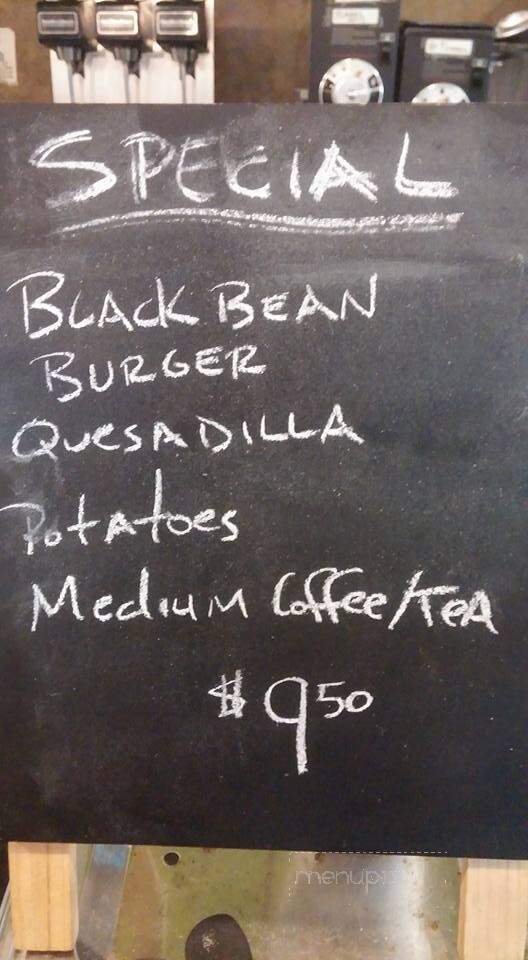 SPECIAL
BLACK BEAN
BURGER
QUESADILLA
Potatoes
Medium Coffee/TEA
$9 50